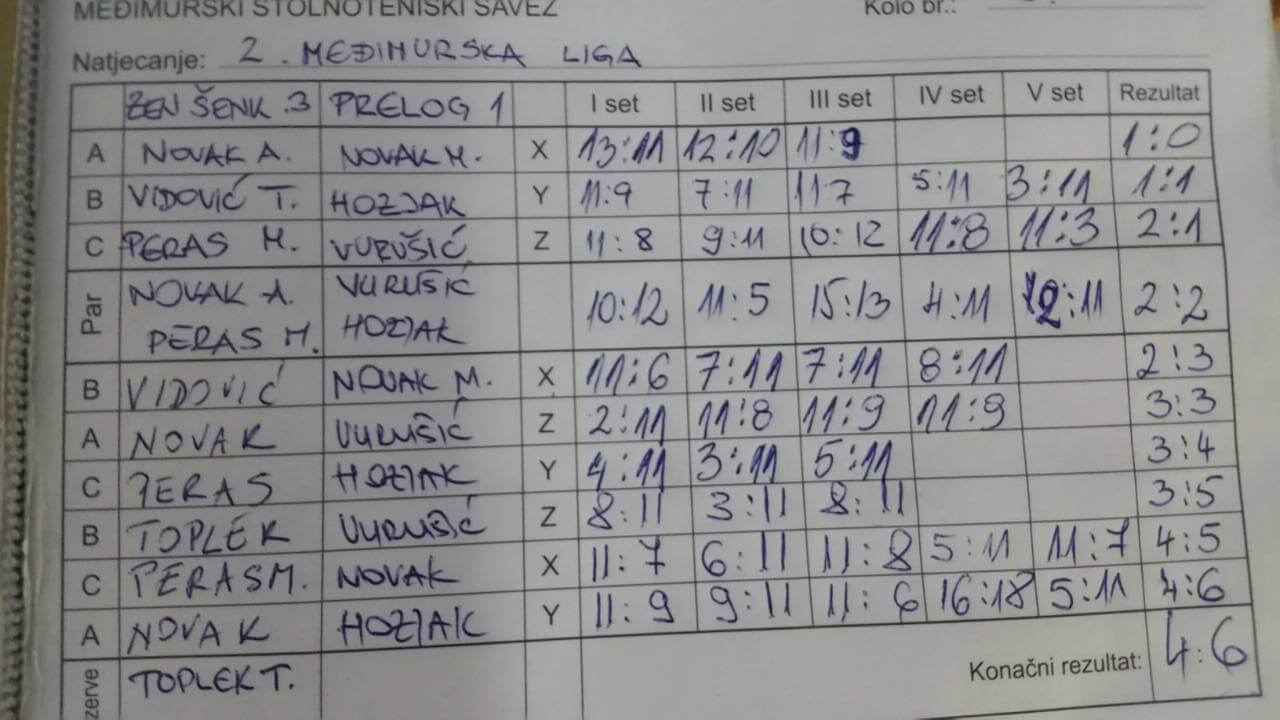 MEĐIMURSKI STOLNOTENISKI SAVEZ Kolo br.:
Natjecanje: 2. MEĐIMURSKA LIGA
ŽEN ŠENK 3 PRELOG 1 I set II set III set IV set V set Rezultat
A NOVAK A. NOVAK M. X 13:11 12:10 11:9 1:0
B VIDOVIĆ T. HOZJAK Y 11:9 7:11 11:7 5:11 3:11 1:1
C PERAS M. VURUŠIĆ Z 11:8 9:11 10:12 11:8 11:3 2:1
Par NOVAK A. PERAS M. VURUŠIĆ HOZJAK 10:12 11:5 15:13 4:11 :11 2:2
B VIDOVIĆ NOVAK M. X 11:6 7:11 7:11 8:11 2:3
A NOVAK VURUŠIĆ Z 2:11 11:8 11:9 11:9 3:3
C PERAS HOZJAK Y 4:11 3:11 5:11 3:4
B TOPLEK VURUŠIĆ Z 8:11 3:11 8:11 3:5
C PERAS M. NOVAK X 11:7 6:11 11:8 5:11 11:7 4:5
A NOVAK HOZJAK Y 11:9 9:11 11:6 16:18 5:11 4:6
zerve TOPLEK T. Konačni rezultat: 4:6